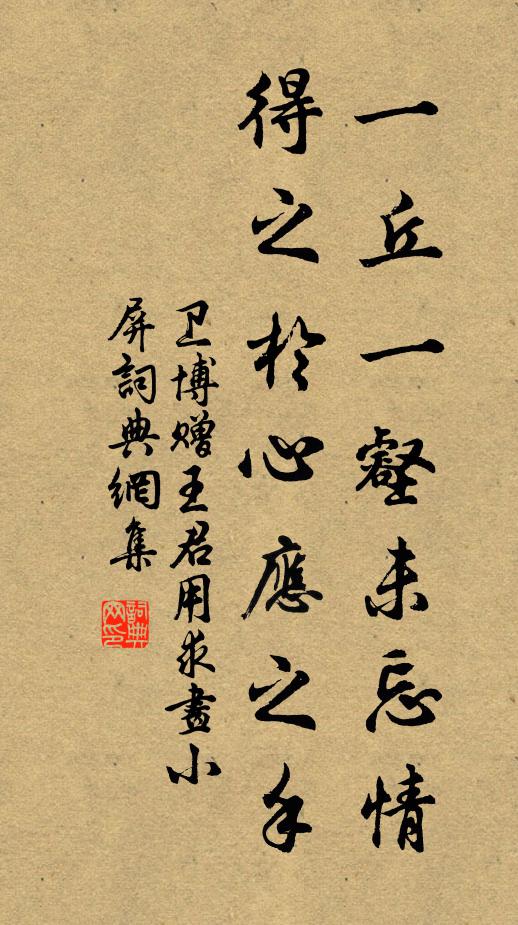 一丘一壑未忘情
得之於心應之手
卫博贈王君用求畫小
屏詞典網集
詞典网印